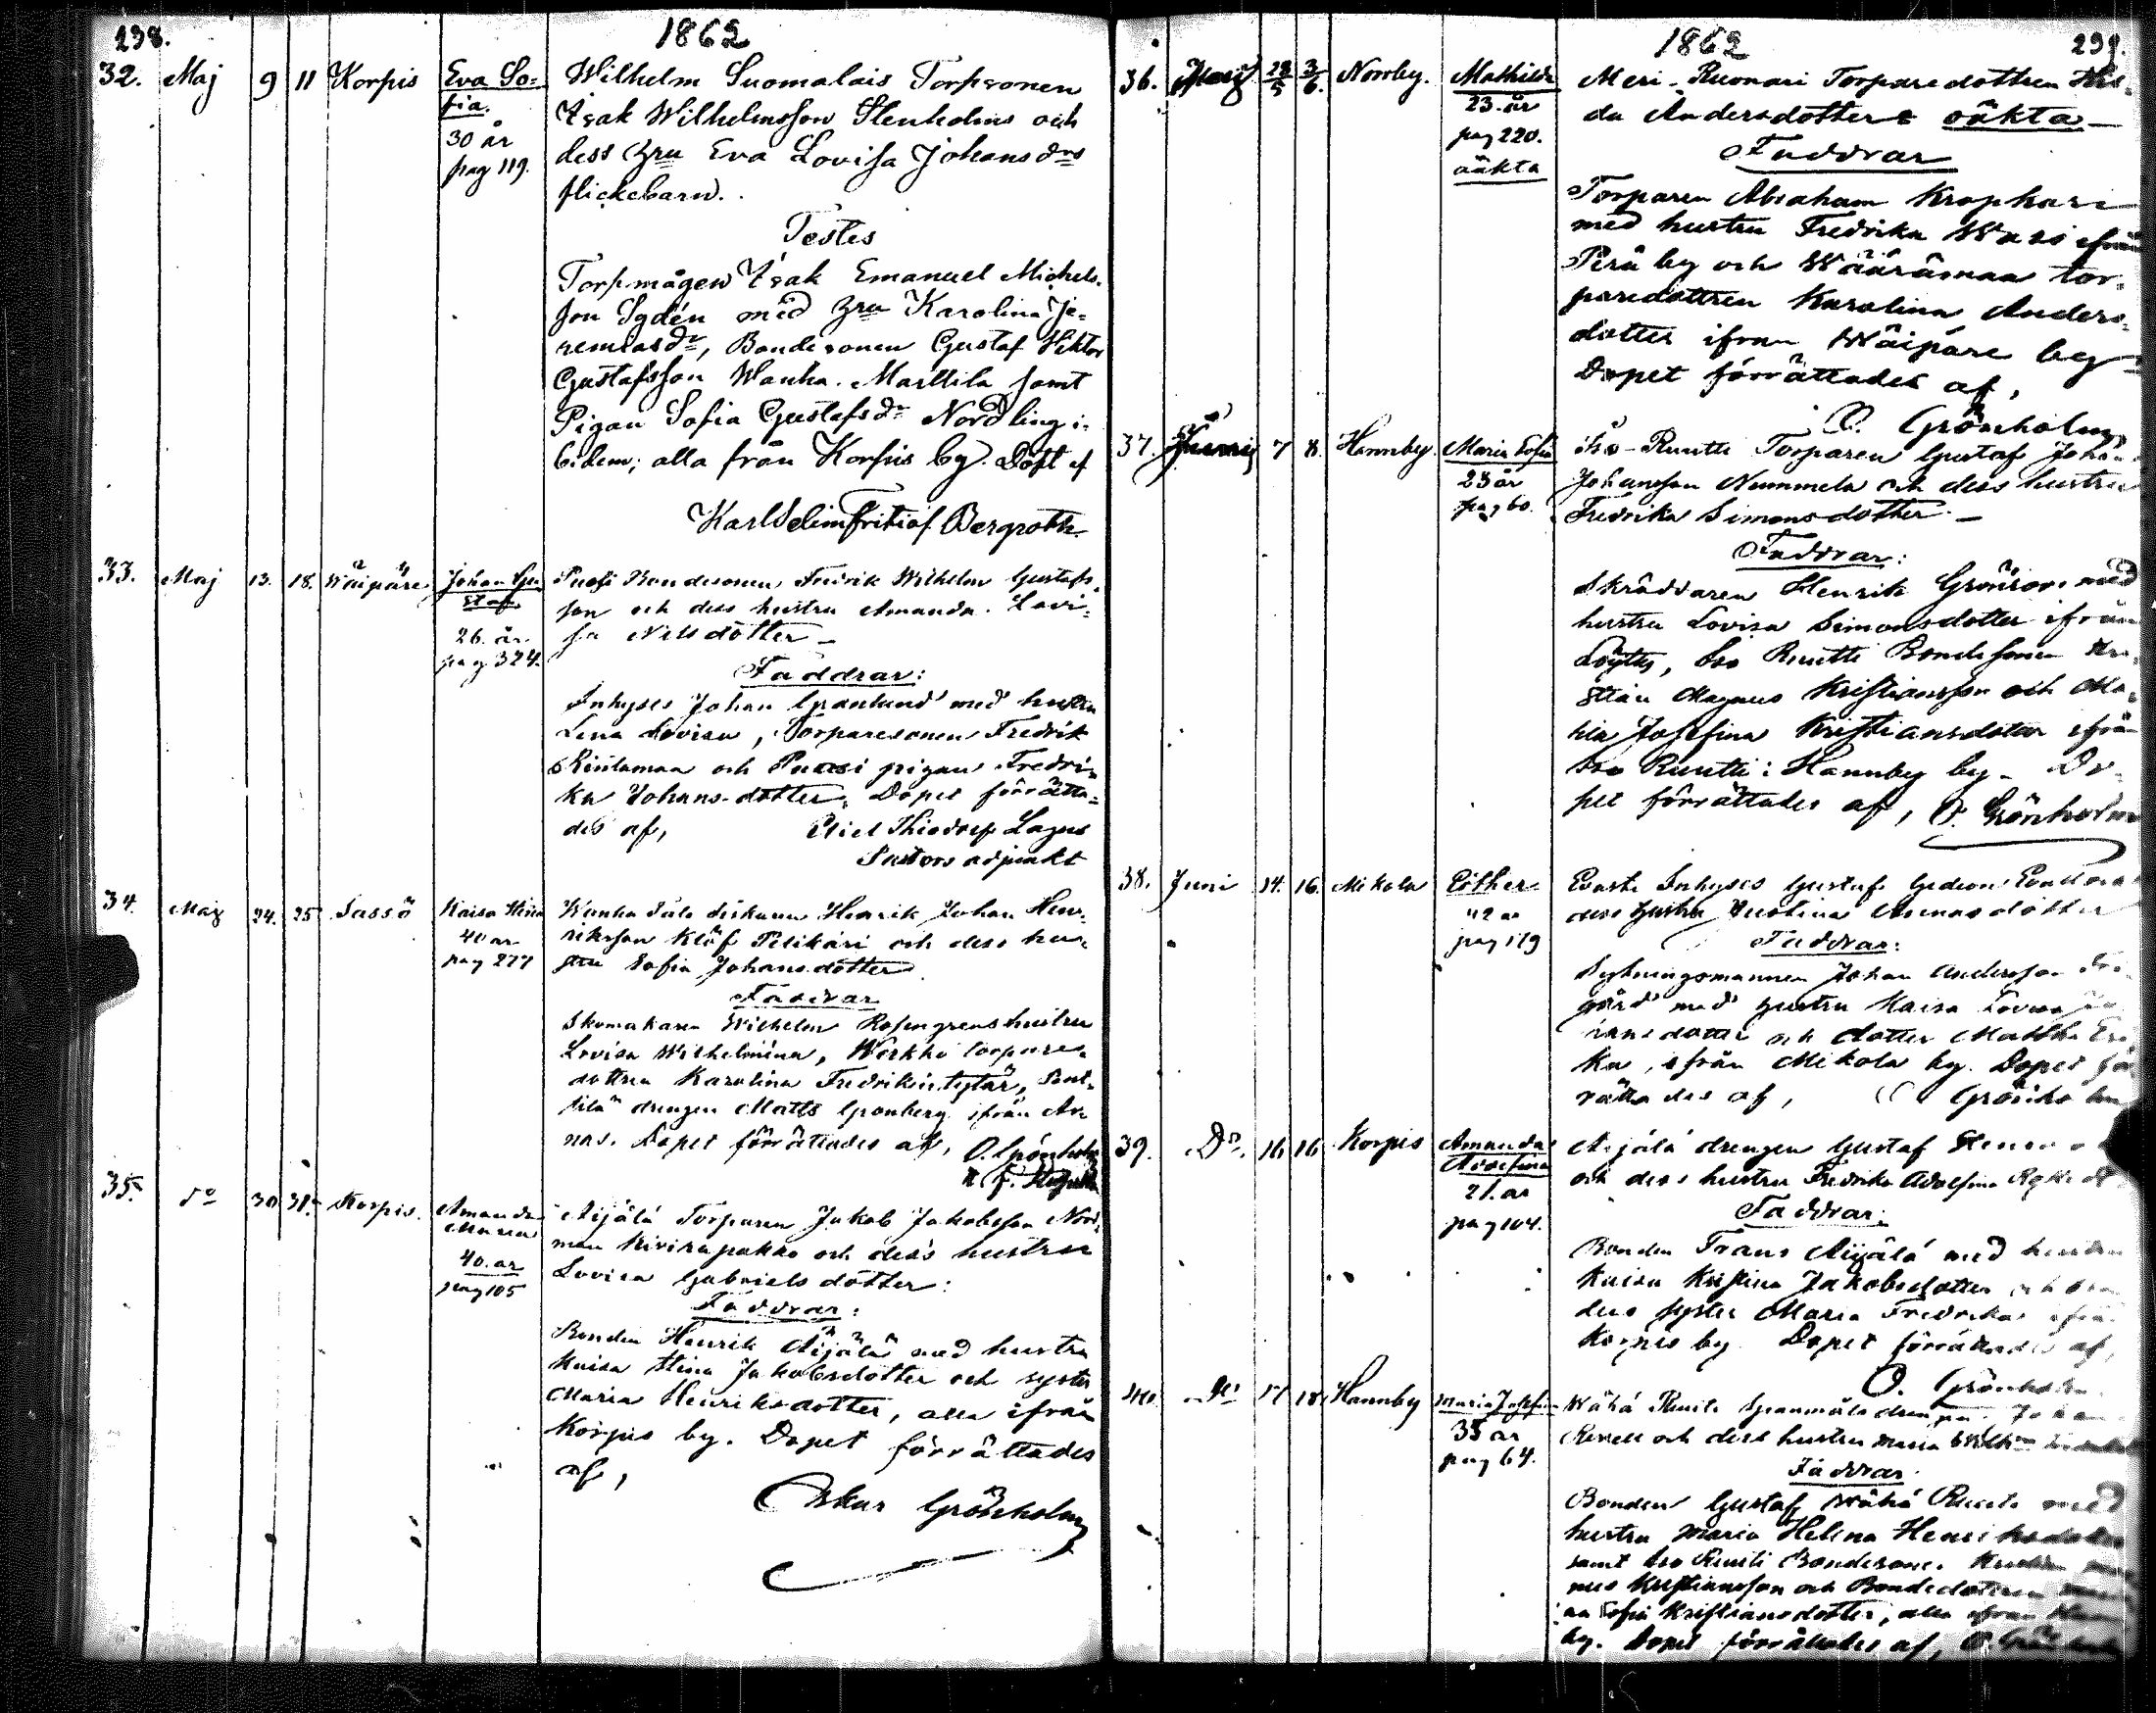 238.
1862
32. Maj 9 11 Korpis
Eva So=
fia.
30 år
pag 119.
Wilhelm Suomalais Torpsonen
Isak Wilhelmsson Stenholms och
dess hru Eva Lovisa Johansdrs
flickebarn.
Testes
Torpmågen Isak Emanuel Michels-
son Sgdén med hru Karolina Je=
remiasdr, Bondesonen Gustaf Viktor
Gustafsson Wanha-Marttila samt
Pigan Sofia Gustafsdr Nordling i-
bidem; alla från Korpis by. Döpt af
Karl Selim Fritiof Bergroth
33. Maj 13. 18. Wäipäre
Johan Gu
staf
26. år
pag 324.
Puosi Bondesonen Fredrik Wilhelm Gustafs-
son och dess hustru Amanda Lovi-
sa Nilsdotter
Faddrar:
Inhyses Johan Granlund med hustru
Lena Lovisa, Torparesonen Fredrik
Rintamaa och Puosi pigan Fredri-
ka Johans-dotter. Dopet förrätta=
des af, Thiodolf Lagus
Pastors adjunkt
34. Maj 24. 25 Sassö
Kaisa Stina
40 år
pag 277
Wanha Henrik Johan Hen-
riksson Klöf Pelikari och dess hu-
stru Sofia Johansdotter.
Faddrar
Skomakaren Wilhelm Rosengrens hustru
Lovisa Wilhelmina, Werkko torpare-
dottren Karolina Fredrikintytär, Pent-
tilä drengen Matts Grönberg ifrån Ar-
nas. Dopet förrättades af, O. Grönholm
35. do 30 31. Korpis.
Amanda
Maria
40. år
pag 105
Äijälä Torparen Jakob Jakobsson Nord-
man Kivikapakka och dess hustru
Lovisa Gabriels dotter:
Faddrar:
Bonden Henrik Äijälä med hustru
Kaisa Stina Jakobsdotter och syster
Maria Henriksdotter, alla ifrån
Korpis by. Dopet förrättades
af,
Oskar Grönholm
1862
239.
36. Maj 28/5 3/6. Norrby.
Mathilda
23. år
pag 220.
oäkta
Meri-Ruonari Torparedottren
da Andersdotters oäkta
Faddrar
Torparen Abraham Krapkari
med hustru Fredrika Wasi ifrån
Perä by och Wääräinmaa tor-
paredottren Karolina Anders-
dotter ifrån Wäipäre by
Dopet förrättades af,
O. Grönholm
37. Junij 7 8. Hannby
Maria Sofia
23 år
pag 60.
Iso-Ruutti Torparen Gustaf Johan
Johansson Nummela och dess hustru
Fredrika Simonsdotter.
Faddrar:
Skräddaren Henrik Grönroos med
hustru Lovisa Simonsdotter ifrån
Löytty, Iso Ruutti Bondesonen Kri-
stian Magnus Kristiansson och Ma-
ria Josefina Kristiansdotter ifrån
Iso Ruutti i Hannby by. Do-
pet förrättades af, O. Grönholm
38. Juni 14. 16. Mikola
Esther
42 år
pag 119
Inhyses Gustaf Gedeon
dess hustru Justina dotter
Faddrar:
Johan Andersson
gård med hustru Kaisa Lovisa
dotter och dotter
ka, ifrån Mikola by. Dopet för
rättades af, Grönholm
39. Do. 16 16 Korpis
Amanda
Adolfina
21. år
pag 104.
Äijälä drengen Gustaf
och dess hustru Fredrika Adolfina
Faddrar:
Bonden Frans Äijälä med hustru
Kaisa Kristina Jakobsdotter och
dess syster Maria Fredrika ifrån
Korpis by. Dopet förrättades af,
O. Grönholm
40. Do 17 18. Hannby
Maria Josefina
35 år
pag 64.
Wähä Ruuti drengen Johan
och dess hustru Maria
Faddrar
Bonden Gustaf Wähä Ruuti med
hustru Maria Helena Henriksdotter
samt Iso Ruuti Bondesonen
nus Kristiansson och Bondedottren
na Sofia Kristiansdotter, alla ifrån
by. Dopet förrättades af, O. Grönholm